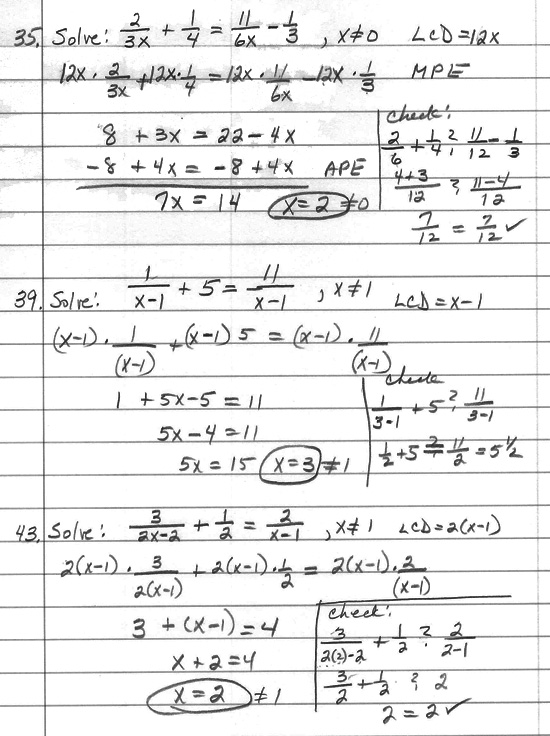 35. Solve: 2/3x + 1/4 = 11/6x - 1/3 , x≠0 LCD=12x
12x · 2/3x + 12x · 1/4 = 12x · 11/6x - 12x · 1/3 MPE
8 + 3x = 22 - 4x
-8 + 4x = -8 + 4x APE
7x = 14 x=2 ≠0
check:
2/6 + 1/4 ? 11/12 - 1/3
4+3/12 ? 11-4/12
7/12 = 7/12 ✓
39. Solve: 1/x-1 + 5 = 11/x-1 , x≠1 LCD=x-1
(x-1) · 1/(x-1) + (x-1) 5 = (x-1) · 11/(x-1)
1 + 5x-5 = 11
5x-4 = 11
5x = 15 x=3 ≠1
check
1/3-1 + 5 ? 11/3-1
1/2 + 5 ?= 11/2 = 5 1/2
43. Solve: 3/2x-2 + 1/2 = 2/x-1 , x≠1 LCD=2(x-1)
2(x-1) · 3/2(x-1) + 2(x-1) · 1/2 = 2(x-1) · 2/(x-1)
3 + (x-1) = 4
x+2=4
x=2 ≠1
check:
3/2(2)-2 + 1/2 ? 2/2-1
3/2 + 1/2 ? 2
2 = 2 ✓